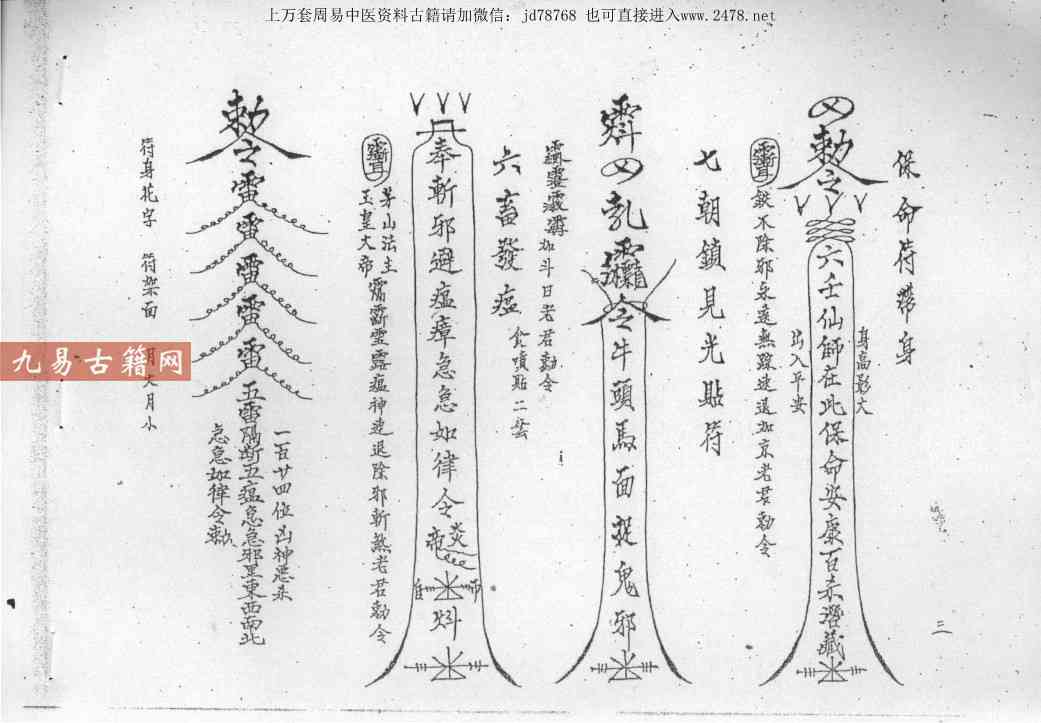 上万套周易中医资料古籍请加微信：jd78768 也可直接进入www.2478.net
保命符帶身
身高影大
出入平安
敕令
六壬仙師在此保命安康百煞潛藏
鉄不除邪永遠無踪速退如京老君勅令
三
七朝鎖見光貼符
令牛頭馬面捉鬼邪
如斗日老君勅令
六畜發瘟
食噴點二
奉斬邪避瘟瘴急急如律令
茅山法主
玉皇大帝
瘟神速退除邪斬煞老君勅令
敕令
雷
雷
雷
雷
雷
五雷
一百廿四位凶神惡煞
急急如律令敕
符身花字
符架面
月大月小
九易古籍网